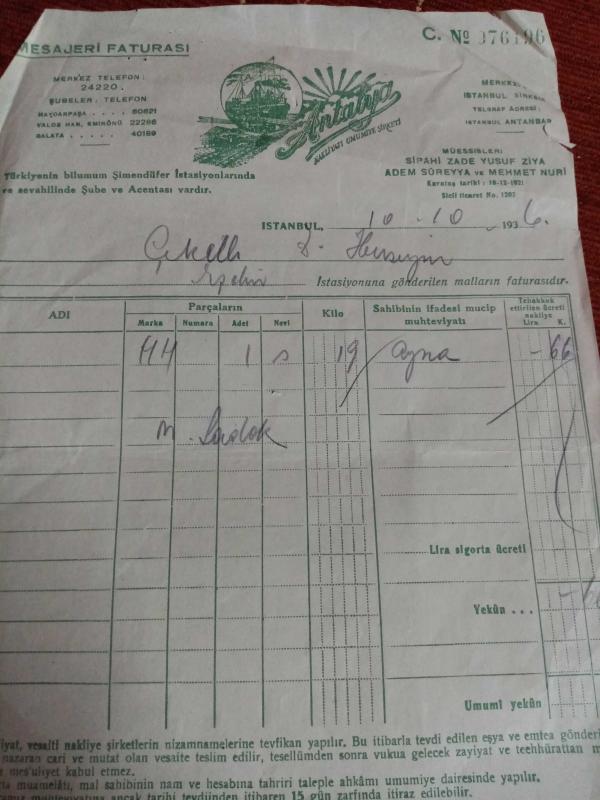 MESAJERİ FATURASI
C. № 076196
MERKEZ TELEFON:
24220.
ŞUBELER: TELEFON
HAYDARPAŞA .... 60621
VALDE HAN, EMİNÖNÜ 22286
GALATA ..... 40189
Antalya
NAKLİYATI UMUMİYE ŞİRKETİ
MERKEZ
İSTANBUL SİRKECİ
TELGRAF ADRESİ:
İSTANBUL ANTANBAR
MÜESSİSLERİ
SİPAHİ ZADE YUSUF ZİYA
ADEM SÜREYYA ve MEHMET NURİ
Kuruluş tarihi: 18-12-1921
Sicili ticaret No. 1203
Türkiyenin bilumum Şimendüfer İstasiyonlarında
ve sevahilinde Şube ve Acentası vardır.
İSTANBUL, 10 - 10 - 1936.
Hüseyin
İstasiyonuna gönderilen malların faturasıdır.
ADI
Parçaların
Marka Numara Adet Nevi
Kilo
Sahibinin ifadesi mucip
muhteviyatı
Tahakkuk
ettirilen ücreti
nakliye
Lira K.
HH 1 s 19 ayna - 66
M.
Lira sigorta ücreti
Yekûn ...
Umumî yekûn
vesaiti nakliye şirketlerin nizamnamelerine tevfikan yapılır. Bu itibarla tevdi edilen eşya ve emtea
nazaran cari ve mutat olan vesaite teslim edilir, tesellümden sonra vukua gelecek zayiyat ve teehhürattan
mes'uliyet kabul etmez.
muamelâtı, mal sahibinin nam ve hesabına tahriri taleple ahkâmı umumiye dairesinde yapılır.
muhteviyatına ancak tarihi tevdiinden itibaren 15 gün zarfında itiraz edilebilir.